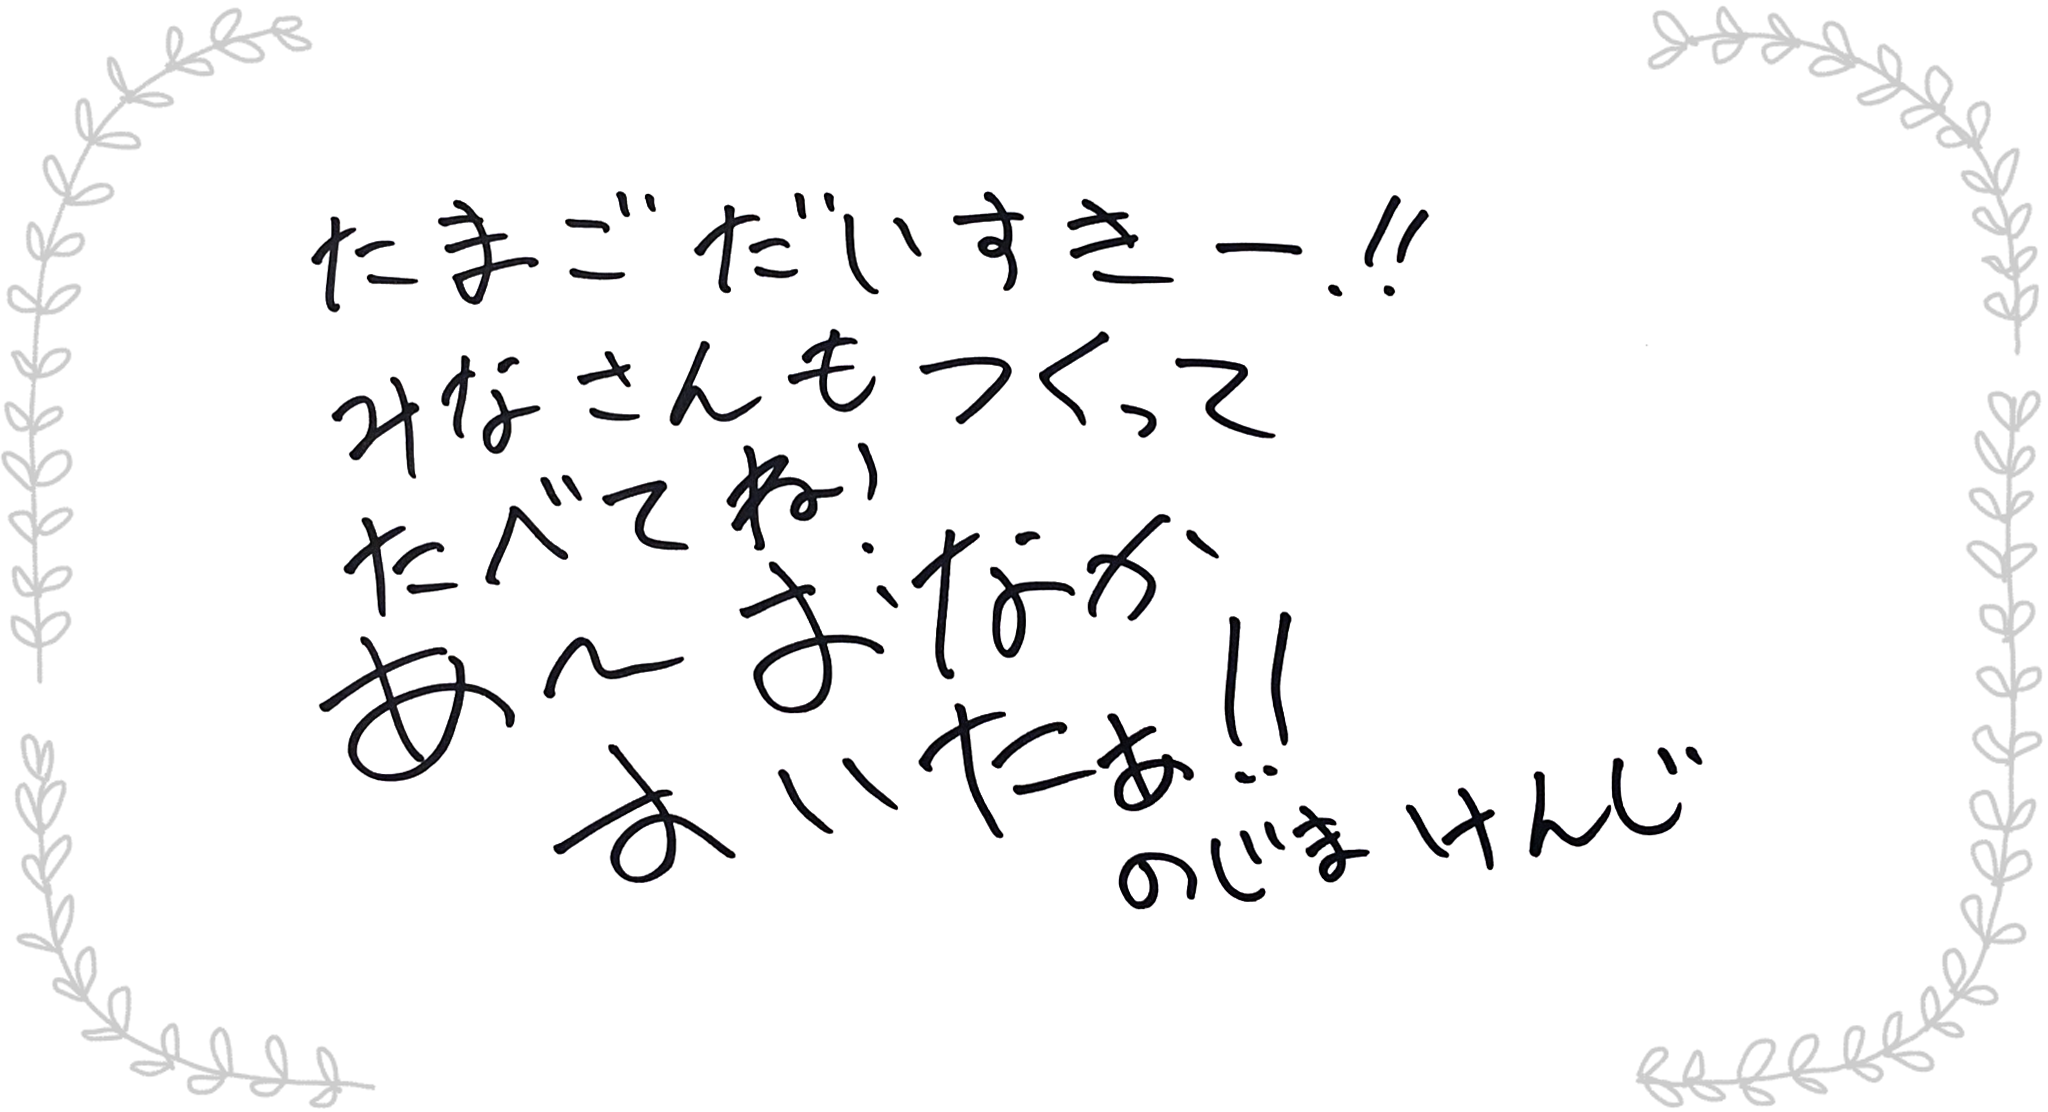 たまごだいすきー!!
みなさんもつくって
たべてね!
あ〜おなか
すいたぁ!!
のじまけんじ